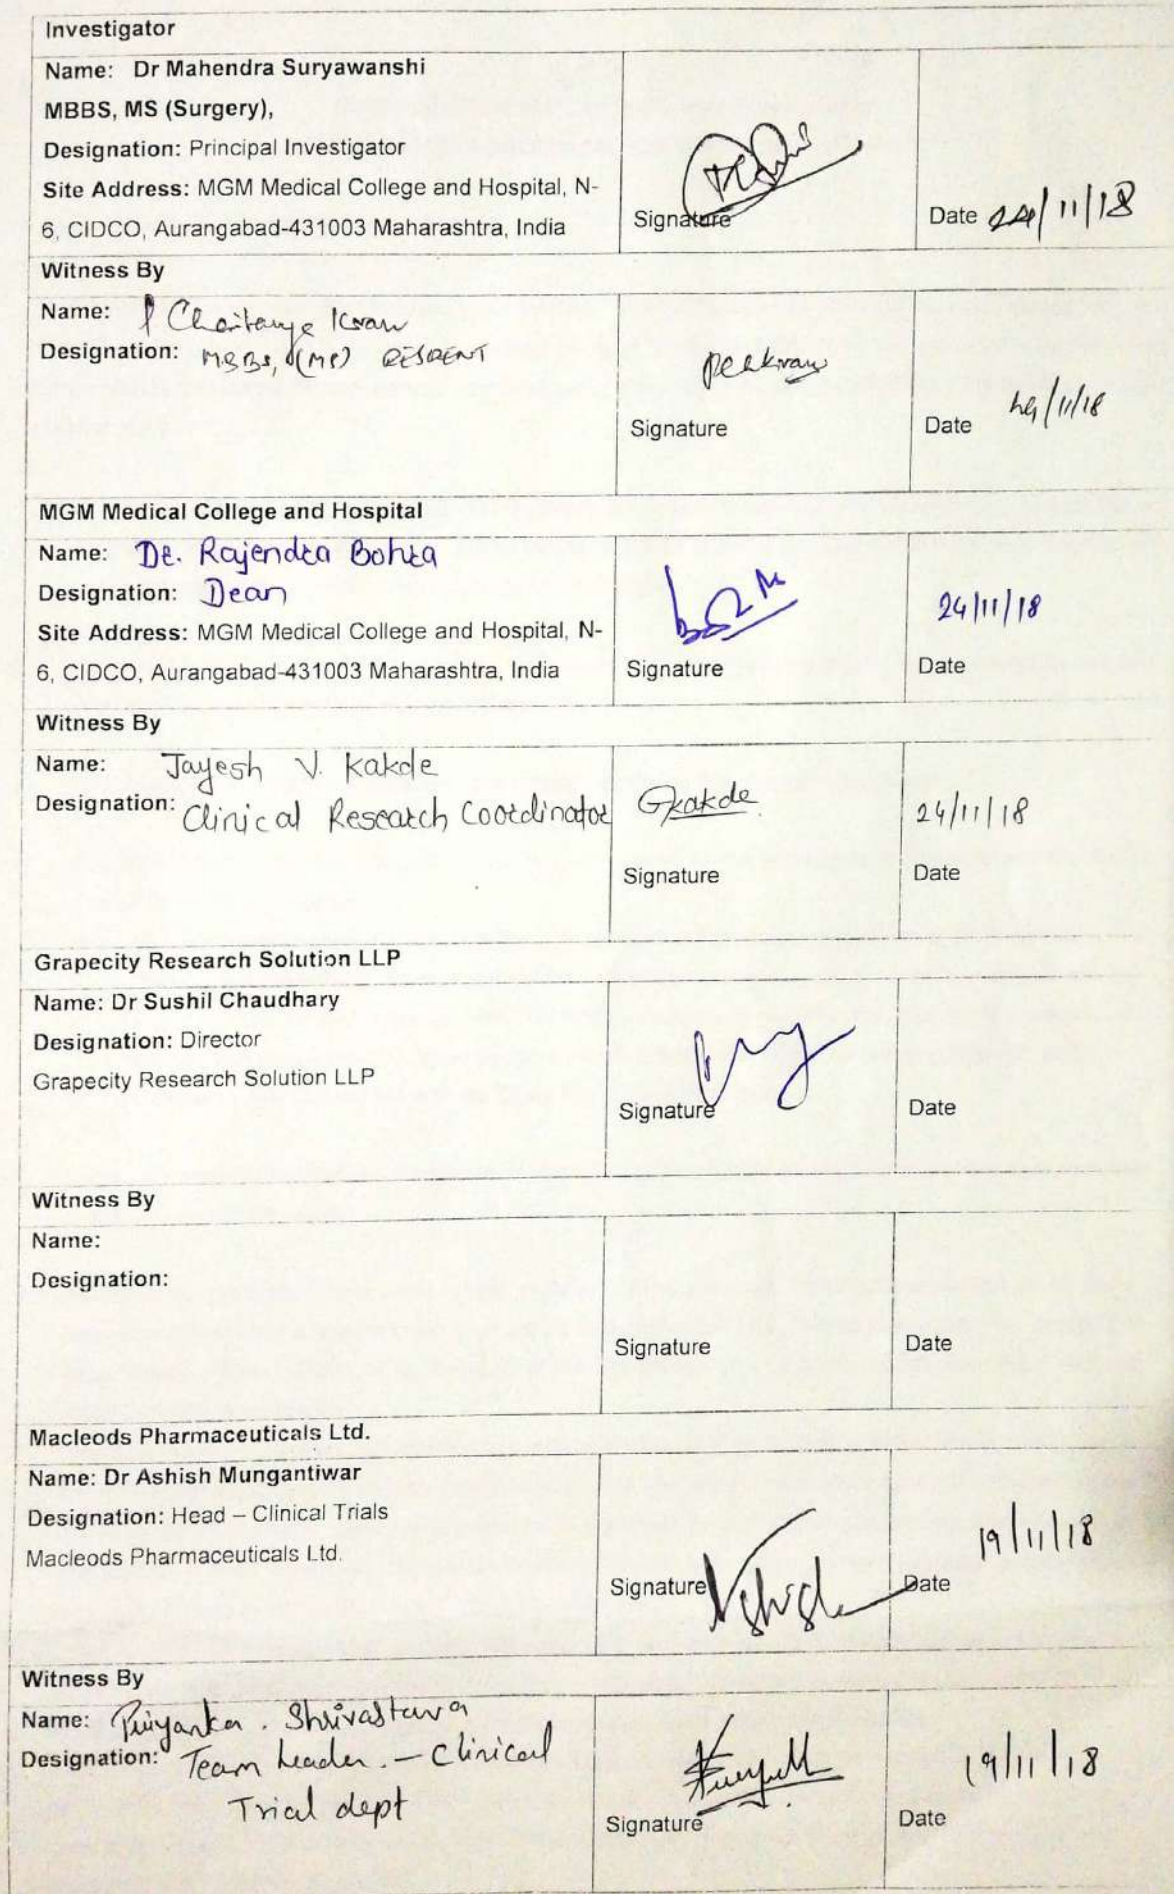 Investigator
Name: Dr Mahendra Suryawanshi
MBBS, MS (Surgery),
Designation: Principal Investigator
Site Address: MGM Medical College and Hospital, N-
6, CIDCO, Aurangabad-431003 Maharashtra, India
Signature
Date 24/11/18
Witness By
Name: P Chaitanya Kiran
Designation: MBBS, (MS) RESIDENT
Signature
Date 24/11/18
MGM Medical College and Hospital
Name: Dr. Rajendra Bohra
Designation: Dean
Site Address: MGM Medical College and Hospital, N-
6, CIDCO, Aurangabad-431003 Maharashtra, India
Signature
24/11/18
Date
Witness By
Name: Jayesh V. Kakde
Designation: Clinical Research Coordinator
Gkakde
Signature
24/11/18
Date
Grapecity Research Solution LLP
Name: Dr Sushil Chaudhary
Designation: Director
Grapecity Research Solution LLP
Signature
Date
Witness By
Name:
Designation:
Signature
Date
Macleods Pharmaceuticals Ltd.
Name: Dr Ashish Mungantiwar
Designation: Head – Clinical Trials
Macleods Pharmaceuticals Ltd.
Signature
19/11/18
Date
Witness By
Name: Priyanka . Shrivastava
Designation: Team Leader. – Clinical
Trial dept
Signature
19/11/18
Date